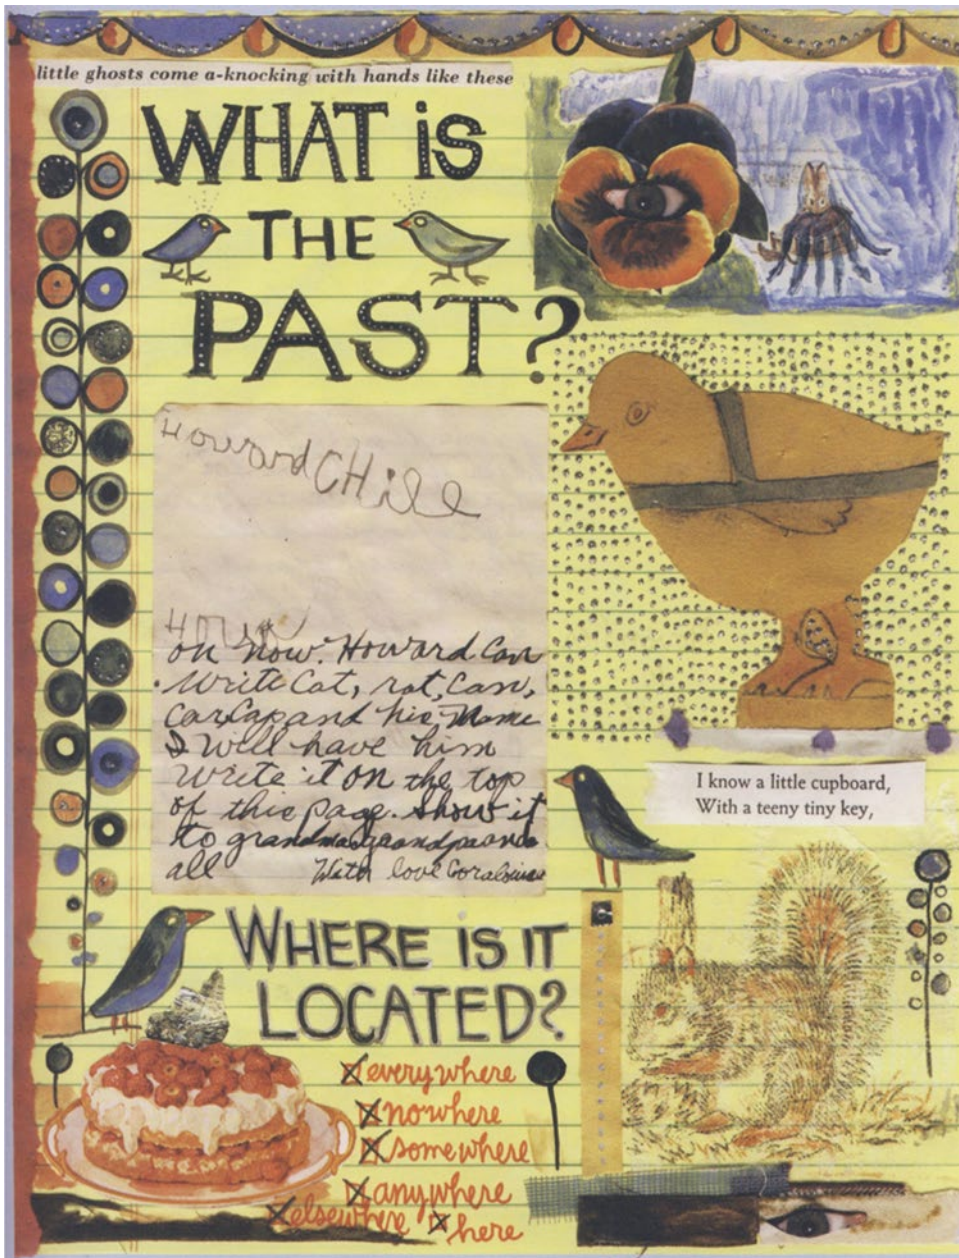 little ghosts come a-knocking with hands like these
WHAT is
THE
PAST?
Howard CHill
on now. Howard can
write Cat, rat, Can,
Car, Cap and his Name
I will have him
write it on the top
of this page. Show it
to grandma grandpa and
all With love
I know a little cupboard,
With a teeny tiny key,
WHERE IS IT
LOCATED?
everywhere
nowhere
somewhere
anywhere
elsewhere here